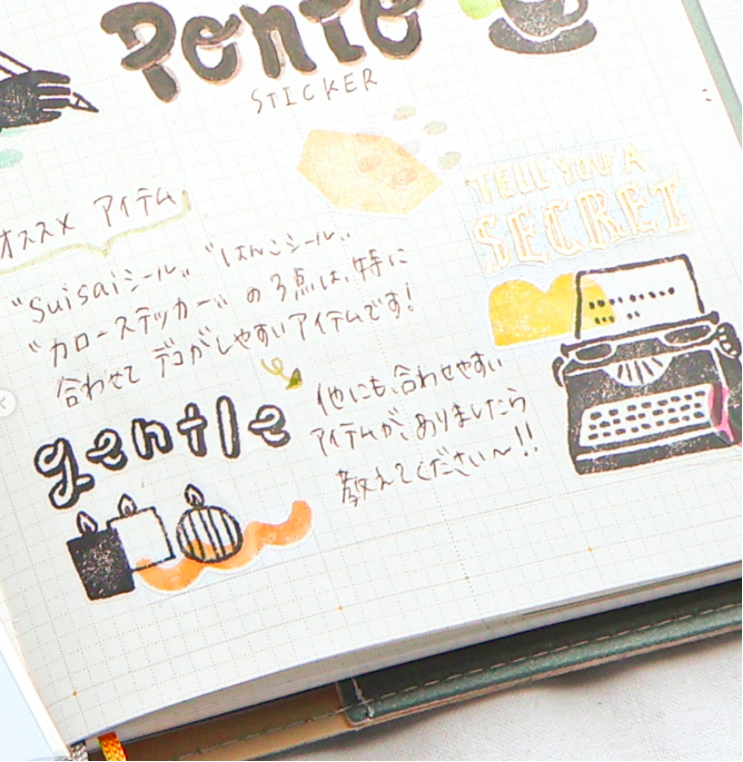 Ponte
STICKER
オススメ アイテム
TELL YOU A
SECRET
"Suisaiシール" "はんこシール"
"カローステッカー" の3点は、特に
合わせて デコがしやすいアイテムです!
gentle
他にも、合わせやすい
アイテムが、ありましたら
教えてください〜!!